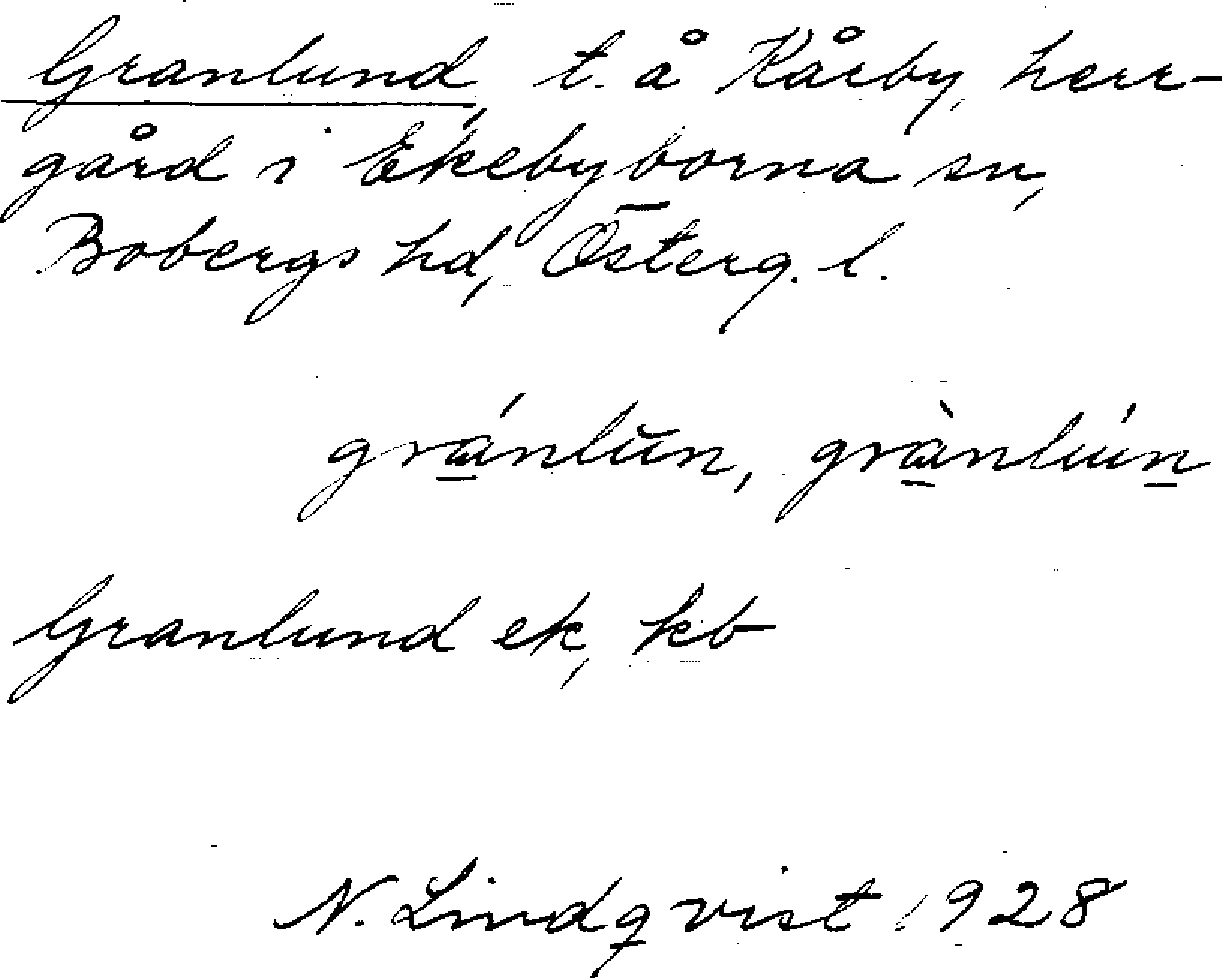 Granlund, t. å Kårby, herr-
gård i Ekebyborna sn,
Bobergs hd, Österg. l.
grá̱nlŭn, grà̱nlúṉ
Granlund ek, kb
N. Lindqvist 1928